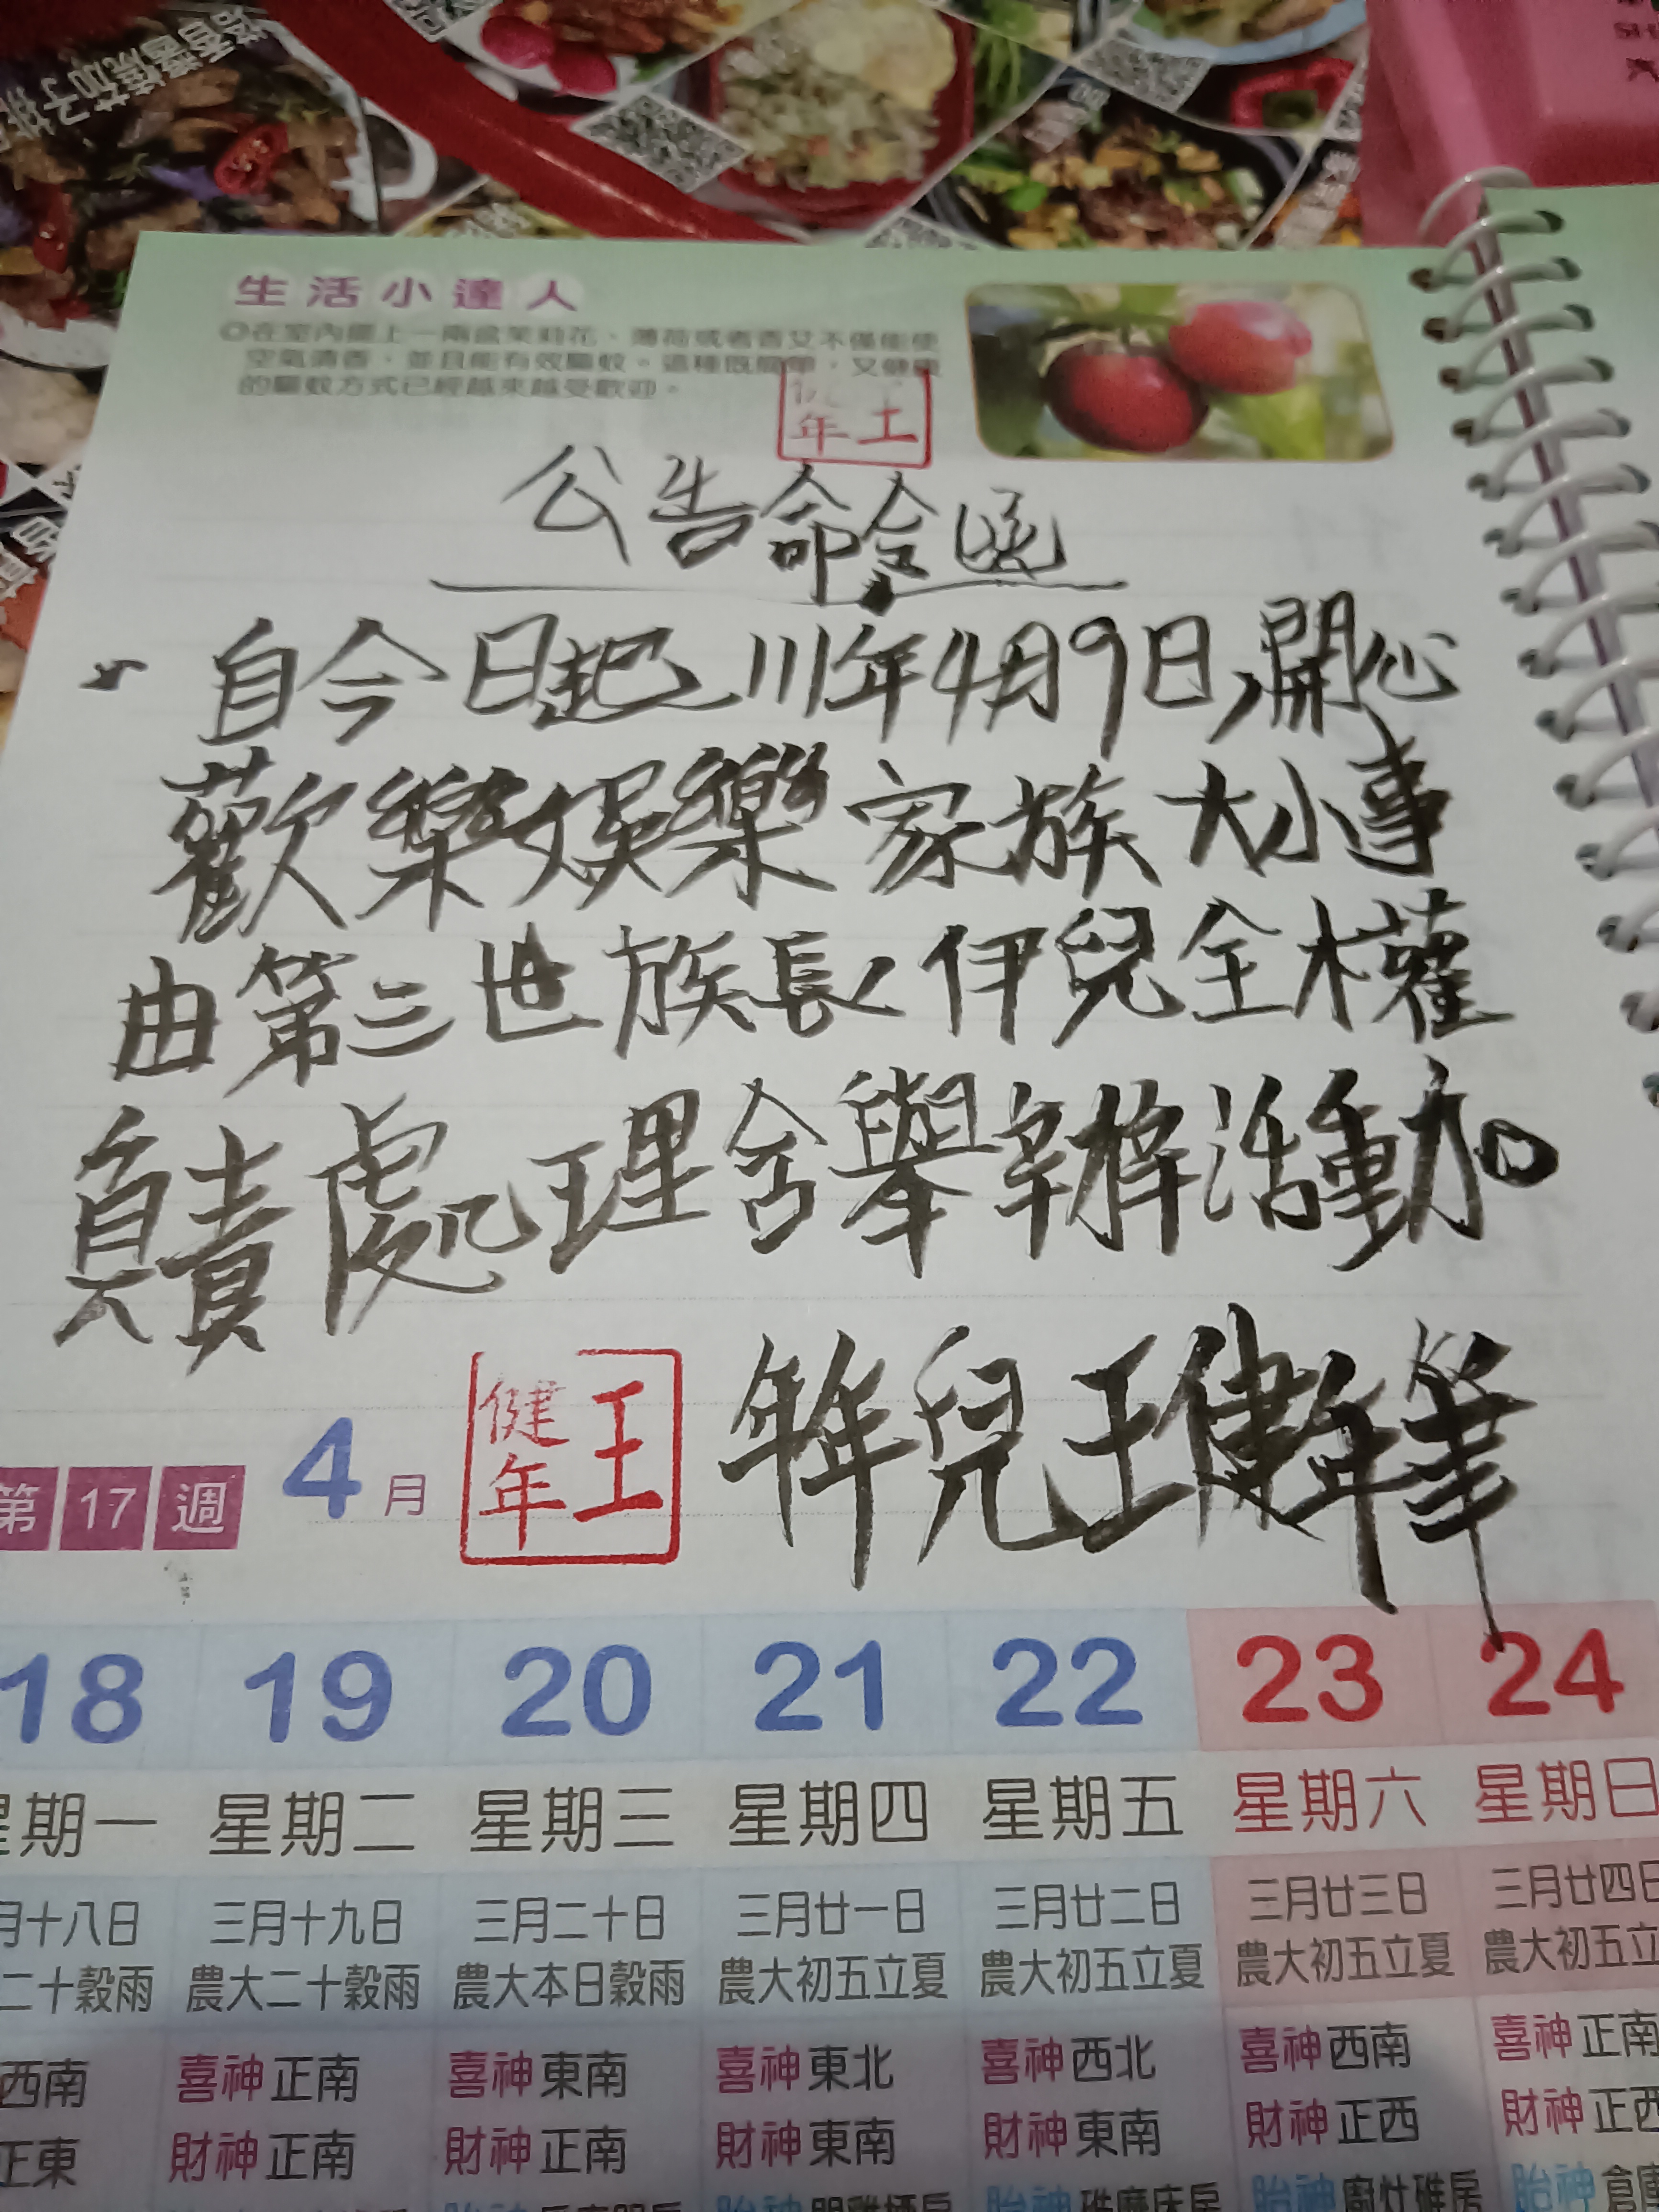 生活小達人
◎在室內擺上一兩盆茉莉花、薄荷或者香艾不僅能使
空氣清香，並且能有效驅蚊。這種既簡單，又健康
的驅蚊方式已經越來越受歡迎。
年 王
公告命令
自今日起111年4月9日,開心
歡樂娛樂家族大小事
由第三世族長伊兒全權
負責處理含舉辦活動。
兒王健年筆
健年 王
第 17 週 4 月
18 19 20 21 22 23 24
星期一 星期二 星期三 星期四 星期五 星期六 星期日
月十八日 三月十九日 三月二十日 三月廿一日 三月廿二日 三月廿三日 三月廿四日
二十穀雨 農大二十穀雨 農大本日穀雨 農大初五立夏 農大初五立夏 農大初五立夏 農大初五立
西南 喜神正南 喜神東南 喜神東北 喜神西北 喜神西南 喜神正南
正東 財神正南 財神正南 財神東南 財神東南 財神正西 財神正西
胎神 胎神 胎神碓磨床房 胎神廚灶碓房 胎神倉庫